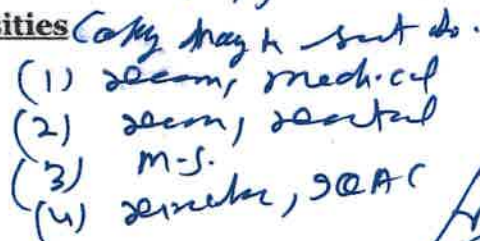 sities Copy may be sent to.
(1) Dean, Medical
(2) Dean, Dental
(3) M.S.
(4) Director, IQAC